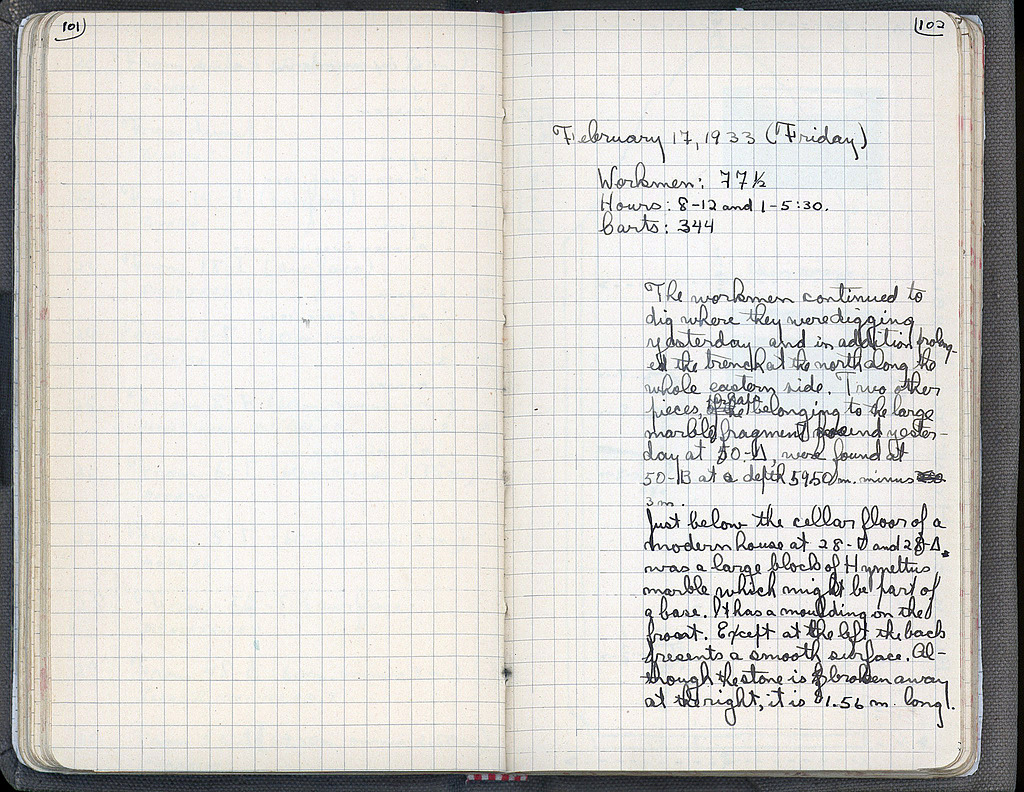 101
102
February 17, 1933 (Friday)
Workmen: 77½
Hours: 8-12 and 1-5:30.
Carts: 344
The workmen continued to
dig where they were digging
yesterday and in addition prolong-
ed the trench at the north along the
whole eastern side. Two other
pieces, perhaps belonging to the large
marble fragment found yester-
day at 50-Δ, were found at
50-B at a depth 59.50 m. minus
3 m.
Just below the cellar floor of a
modern house at and 28-Δ,
was a large block of Hymettus
marble which might be part of
a base. It has a moulding on the
front. Except at the left the back
presents a smooth surface. Al-
though the stone is broken away
at the right, it is 1.56 m. long.